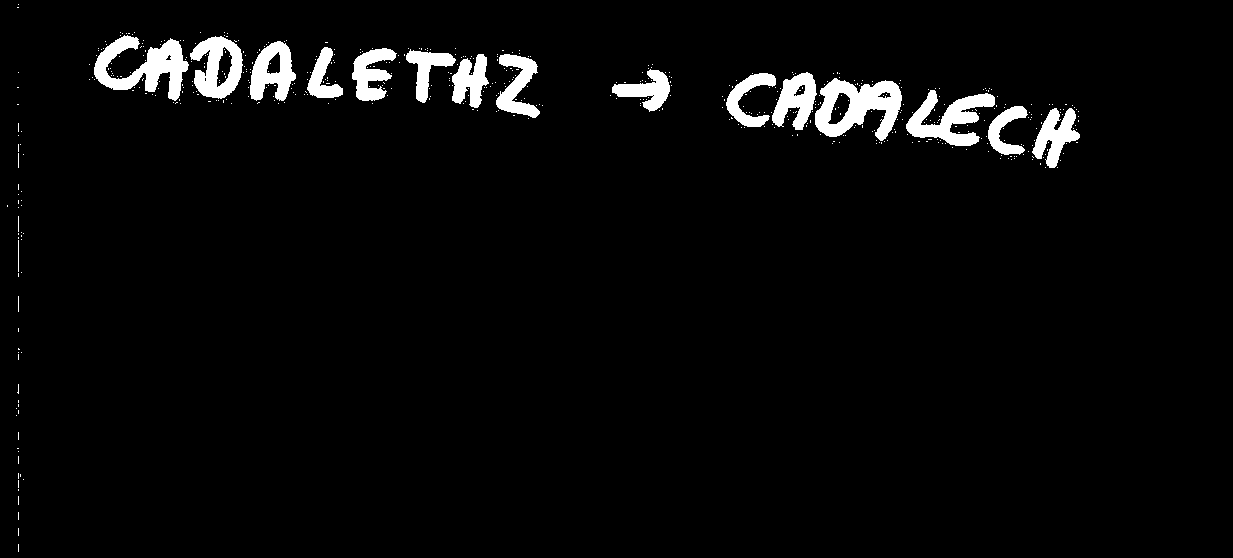 CADALETHZ → CADALECH